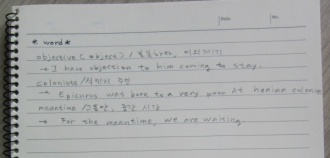 Date No.
* word *
objective (object) / 불복하다, 이의제기
→ I have objection to him coming to stay.
colonists / 식민지 주민
→ Epicurus was bore to a very poor At henian colonis
meantime / 그동안, 중간 시기
→ For the meantime, we are waiting.